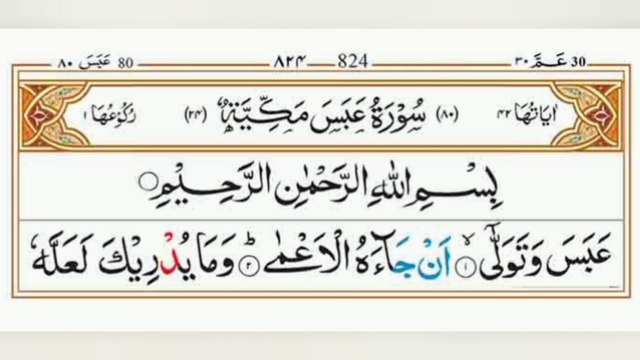 ٨٠ عَبَسَ 80 ٨٢٤ 824 ٣٠ عَمَّ 30
اٰيَاتُهَا ٤٢ (٨٠) سُوْرَةُ عَبَسَ مَكِّيَّةٌ (٢٤) رُكُوْعُهَا ١
بِسْمِ اللّٰهِ الرَّحْمٰنِ الرَّحِيْمِ ○
عَبَسَ وَتَوَلّٰىٓ ۙ﴿١﴾ اَنْ جَآءَهُ الْاَعْمٰى ؕ﴿٢﴾ وَمَا يُدْرِيْكَ لَعَلَّهٗ